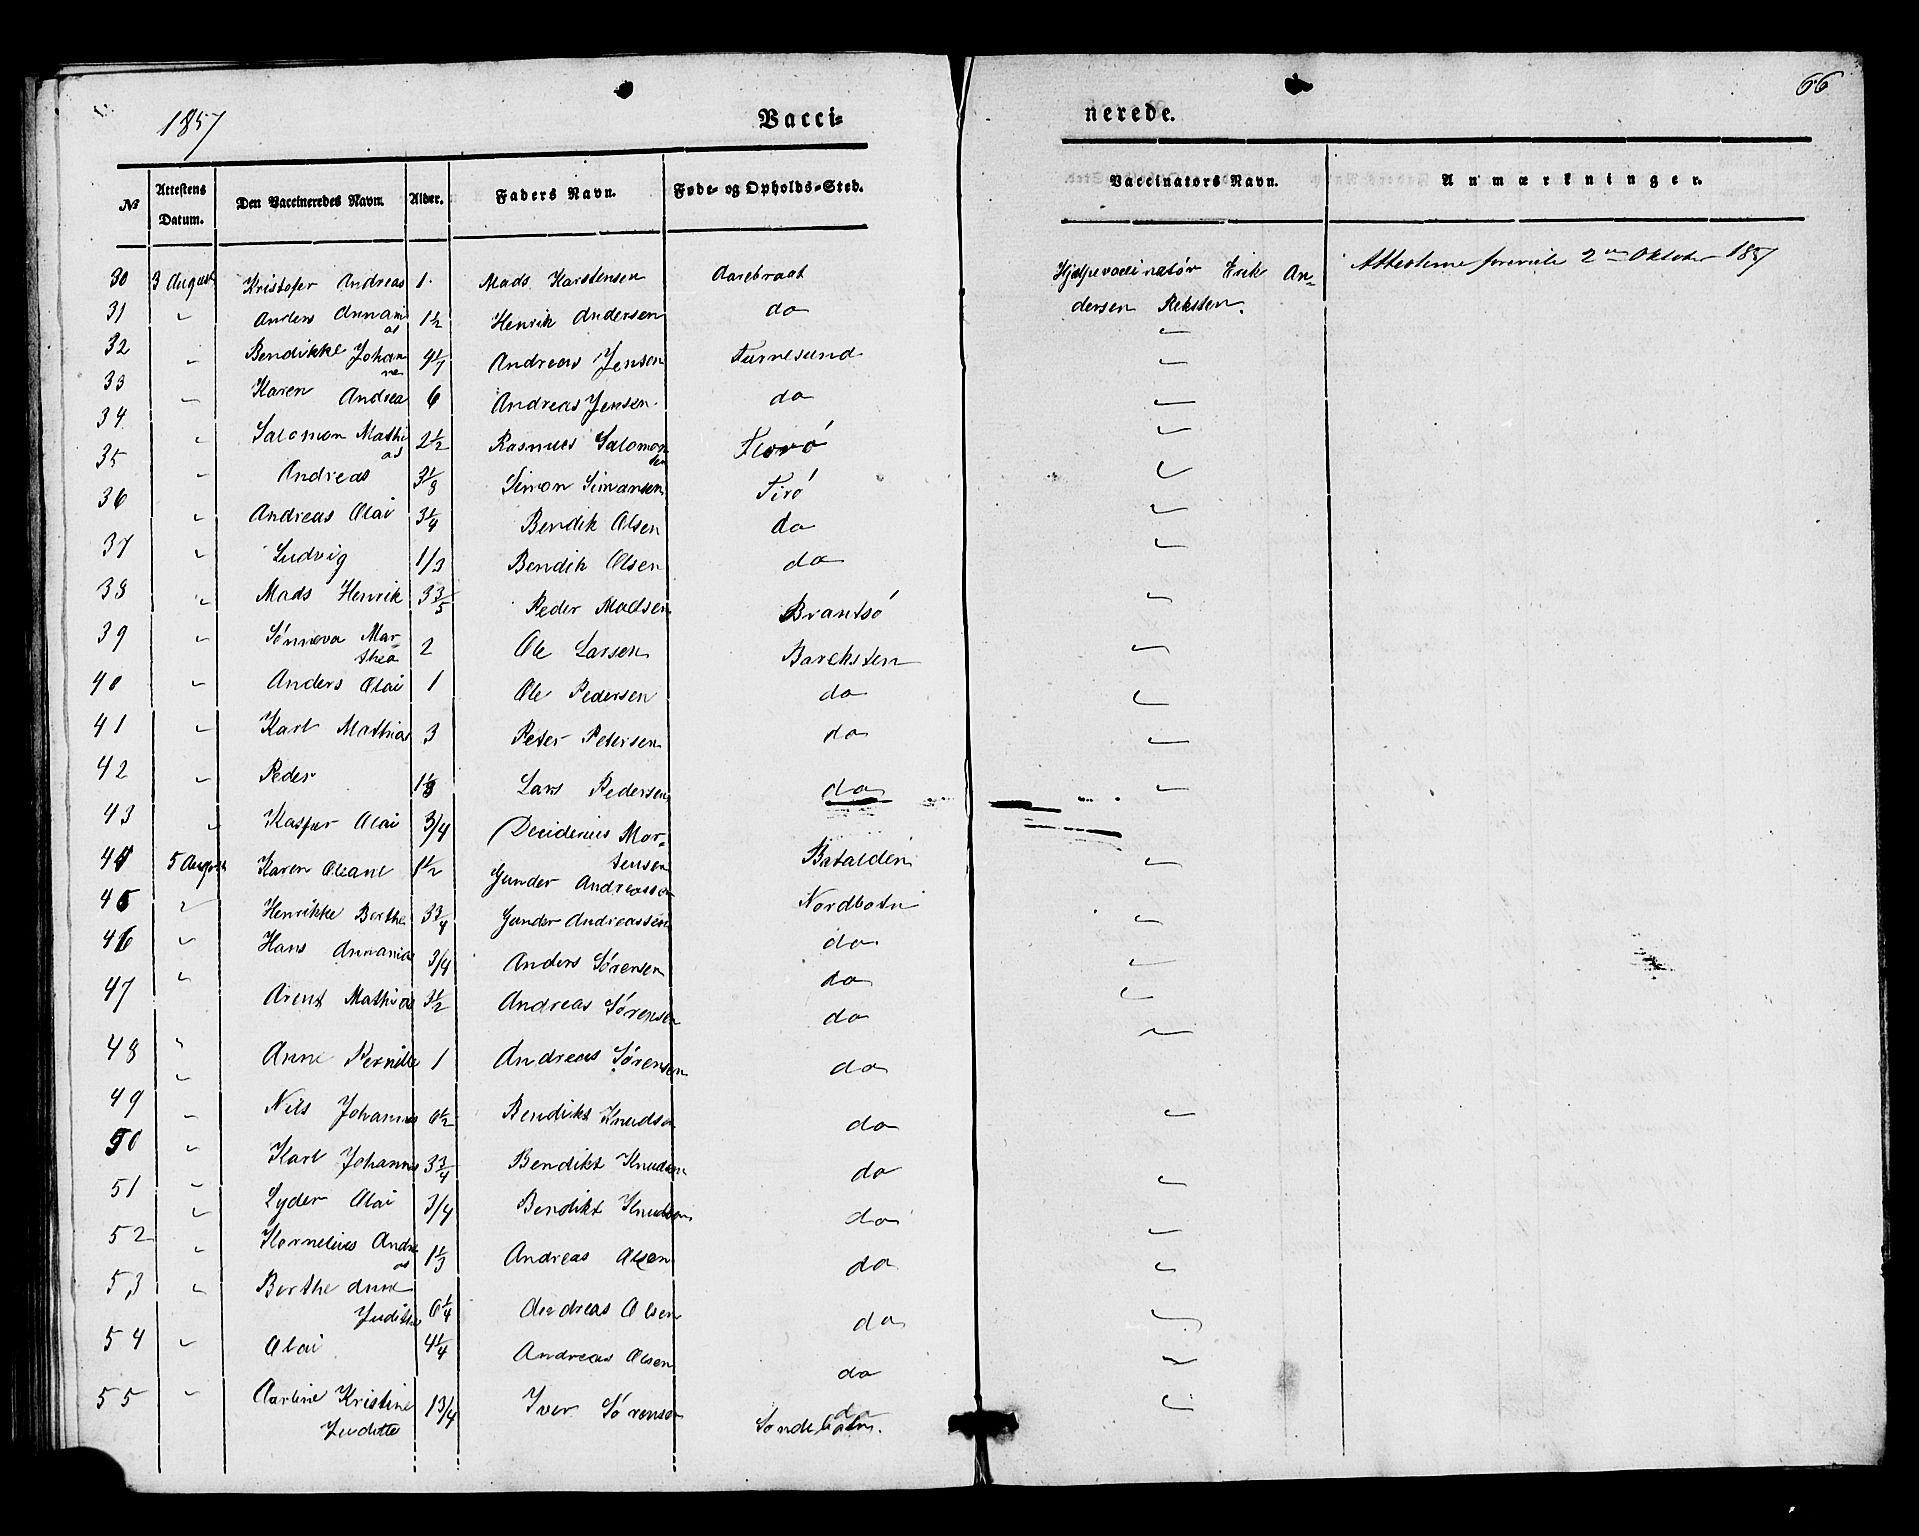 66
1857
Vacci-
nerede.
No
Attestens Datum.
Den Vaccineredes Navn.
Alder.
Faders Navn.
Føde- og Opholds-Sted.
Vaccinators Navn.
Anmærkninger.
30 3 August Kristofer Andreas 1. Mads Karstensen Aarebraat Hjælpevaccinatør Erik An- Attesterne foreviste 2den Oktober 1857
dersen Reksten.
31 " Anders Annanias 1½ Henrik Andersen do "
32 " Bendikke Johanne Andreas Jensen Furresund "
33 " Karen Andrea 6 Andreas Jensen do "
34 " Salomon Mathias 2½ Rasmus Salomonsen Florø "
35 " Andreas Simon Simonsen "
36 " Andreas Olai 3¼ Bendik Olsen do "
37 " Ludvig 1/3 Bendik Olsen do "
38 " Mads Henrik 3 3/5 Peder Madsen Brantsø "
39 " Sønneva Mar-
thea 2 Ole Larsen Bareksten "
40 " Anders Olai 1 Ole Pedersen do "
41 " Karl Mathias 3 Peter Petersen do "
42 " Peder Lars Pedersen do "
43 " Kasper Olai 3/4 Deciderius Mor-
tensen Batalden "
44 5 August Karen Oleane 1½ Gunder Andreassen Nordbotn "
45 " Henrikke Berthe 3¾ Gunder Andreassen do "
46 " Hans Annanias 3/4 Anders Sørensen do "
47 " Arent Mathias 3½ Andreas Sørensen do "
48 " Anne Pernille 1 Andreas Sørensen do "
49 " Nils Johannes 6½ Bendikt Knudsen do "
50 " Karl Johannes 3¾ Bendikt Knudsen do "
51 " Lyder Olai 3/4 Bendikt Knudsen do "
52 " Kornelius Andreas 1⅓ Andreas Olsen do "
53 " Berthe Anne
Judithe 6¼ Andreas Olsen do "
54 " Olai 4¼ Andreas Olsen do "
55 " Kristine
Judette 1 3/4 Iver Sørensen do "